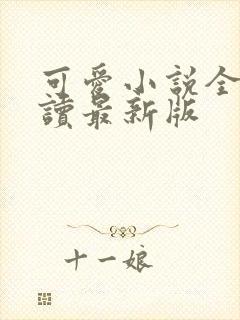 可愛小說全
讀最新版
十一娘